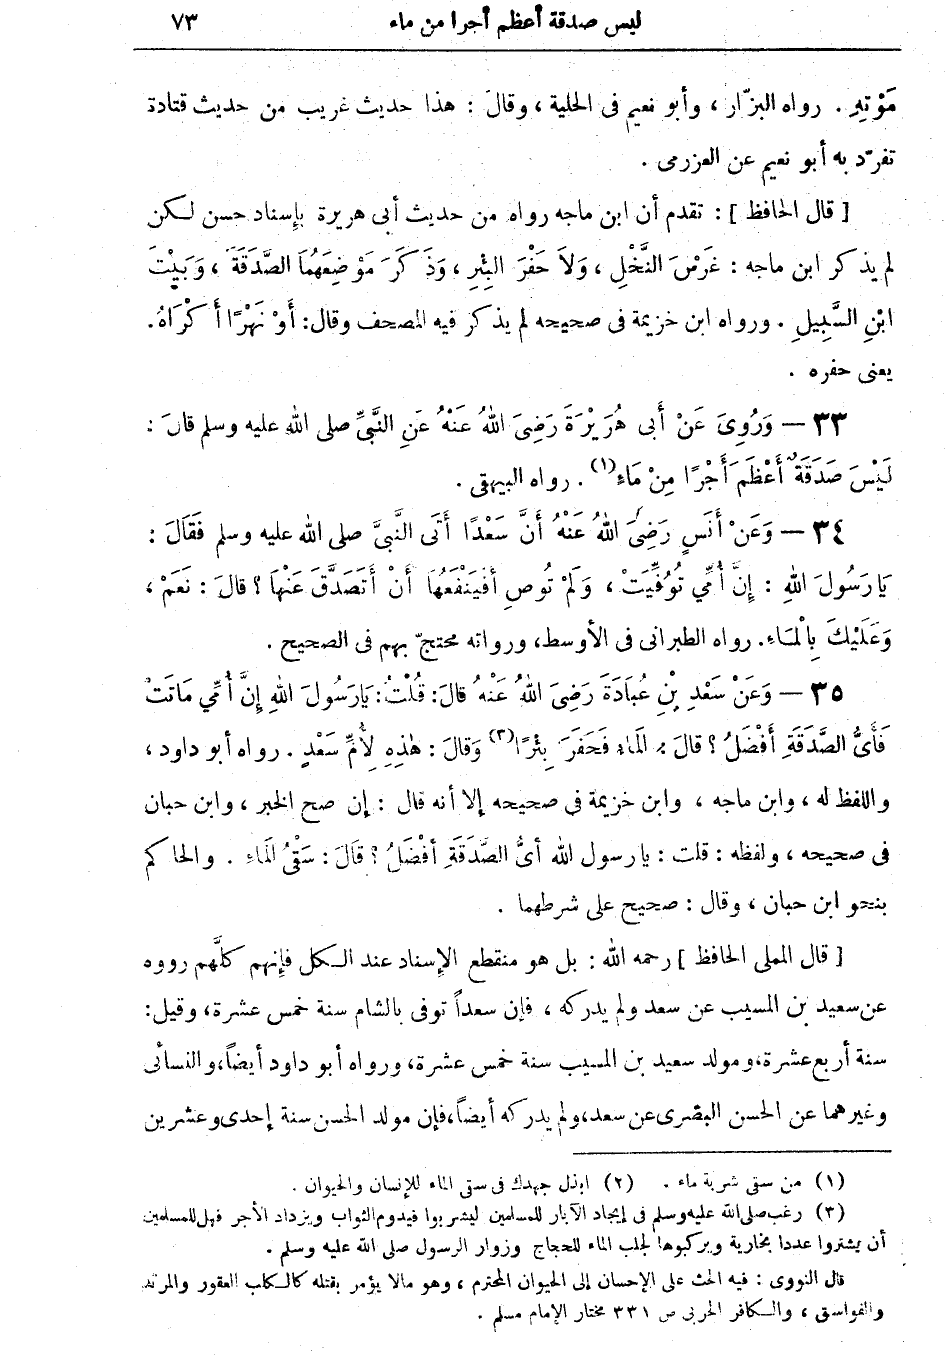 ليس صدقة أعظم أجرا من ماء ٧٣
مَوْتِهِ . رواه البزّار ، وأبو نعيم فى الحلية ، وقالَ : هذا حديث غريب من حديث قتادة
تفرّد به أبو نعيم عن العزرمى .
[ قال الحافظ ] : تقدم أن ابن ماجه رواه من حديث أبى هريرة بإسناد حسن لكن
لم يذكر ابن ماجه : غَرْسَ النَّخْلِ ، وَلاَ حَفْرَ البِئْرِ ، وَذَكَرَ مَوْضِعَهُمَا الصَّدَقَةَ ، وَبَيْتَ
ابْنِ السَّبِيلِ . ورواه ابن خزيمة فى صحيحه لم يذكر فيه المصحف وقال: أَوْ نَهْرًا أَكْرَاهُ.
يعنى حفره .
٣٣ — وَرُوِىَ عَنْ أَبى هُرَيْرَةَ رَضِىَ اللهُ عَنْهُ عَنِ النَّبِيِّ صلى الله عليه وسلم قالَ :
لَيْسَ صَدَقَةٌ أَعْظَمَ أَجْرًا مِنْ مَاءٍ (١) . رواه البيهقى .
٣٤ — وَعَنْ أَنَسٍ رَضِىَ اللهُ عَنْهُ أَنَّ سَعْدًا أَتَى النَّبِيَّ صلى الله عليه وسلم فَقَالَ :
يَارَسُولَ اللهِ : إِنَّ أُمِّي تُوُفِّيَتْ ، وَلَمْ تُوصِ أَفَيَنْفَعُهَا أَنْ أَتَصَدَّقَ عَنْهَا ؟ قالَ : نَعَمْ ،
وَعَلَيْكَ بِالْمَاءِ. رواه الطبرانى فى الأوسط، ورواته محتجّ بهم فى الصحيح .
٣٥ — وَعَنْ سَعْدِ بْنِ عُبَادَةَ رَضِىَ اللهُ عَنْهُ قالَ: قُلْتُ: يَارَسُولَ اللهِ إِنَّ أُمِّي مَاتَتْ
فَأَىُّ الصَّدَقَةِ أَفْضَلُ ؟ قالَ : المَاءُ فَحَفَرَ بِئْرًا (٣) وَقالَ : هٰذِهِ لِأُمِّ سَعْدٍ . رواه أبو داود ،
واللفظ له ، وابن ماجه ، وابن خزيمة فى صحيحه إلا أنه قال : إن صح الخبر ، وابن حبان
فى صحيحه ، ولفظه : قلت : يارسول الله أىُّ الصَّدَقَةِ أَفْضَلُ ؟ قَالَ : سَقْىُ المَاءِ . والحاكم
بنحو ابن حبان ، وقال : صحيح على شرطهما .
[ قال المملى الحافظ ] رحمه الله : بل هو منقطع الإسناد عند الكل فإنهم كلَّهم رووه
عن سعيد بن المسيب عن سعد ولم يدركه ، فإن سعداً توفى بالشام سنة خمس عشرة، وقيل:
سنة أربع عشرة، ومولد سعيد بن المسيب سنة خمس عشرة، ورواه أبو داود أيضاً، والنسائى
وغيرهما عن الحسن البصرى عن سعد، ولم يدركه أيضاً، فإن مولد الحسن سنة إحدى وعشرين
(١) من سقى شربة ماء . (٢) ابذل جهدك فى سقى الماء للإنسان والحيوان .
(٣) رغب صلى الله عليه وسلم فى إيجاد الآبار للمسلمين ليشربوا فيدوم الثواب ويزداد الأجر فهل للمسلمين
أن يشتروا عددا بخارية ويركبوها لجلب الماء للحجاج وزوار الرسول صلى الله عليه وسلم .
قال النووى : فيه الحث على الإحسان إلى الحيوان المحترم ، وهو مالا يؤمر بقتله كالكلب العقور والمرتد
والفواسق ، والكافر الحربى ص ٣٣١ مختار الإمام مسلم .